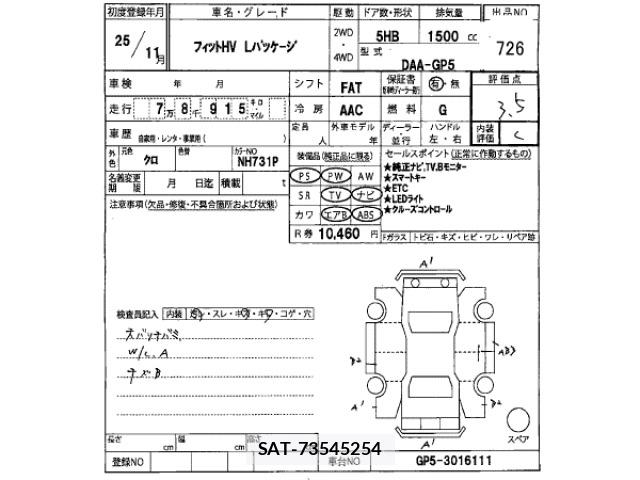 初度登録年月 車名・グレード 駆動 ドア数・形状 排気量 出品NO
25/11月 フィットHV Lパッケージ 2WD・4WD 5HB 1500 cc 726
型式 DAA-GP5
車検 年 月 シフト FAT 保証書 有・無 評価点 3.5
走行 7万8千915 キロ マイル 冷房 AAC 燃料 G
車歴 自家用・レンタ・事業用( ) 定員 人 外車モデル 年 ディーラー・並行 ハンドル 左・右 内装評価 C
外色 元色 クロ 色替 カラーNO NH731P
装備品(純正品に限る) セールスポイント(正常に作動するもの)
名義変更期限 月 日迄 積載 t
PS PW AW
SR TV ナビ
カワ エアB ABS
R券 10,460 円
★純正ナビ,TV,Bモニター
★スマートキー
★ETC
★LEDライト
★クルーズコントロール
Fガラス トビ石・キズ・ヒビ・ワレ・リペア跡
注意事項(欠品・修復・不具合箇所および状態)
検査員記入 内装 スレ・キズ・キワ・コゲ・穴
W/C.A
A1
A1
A1
スペア
長さ cm 幅 cm 高さ cm
SAT-73545254
登録NO 車台NO GP5-3016111